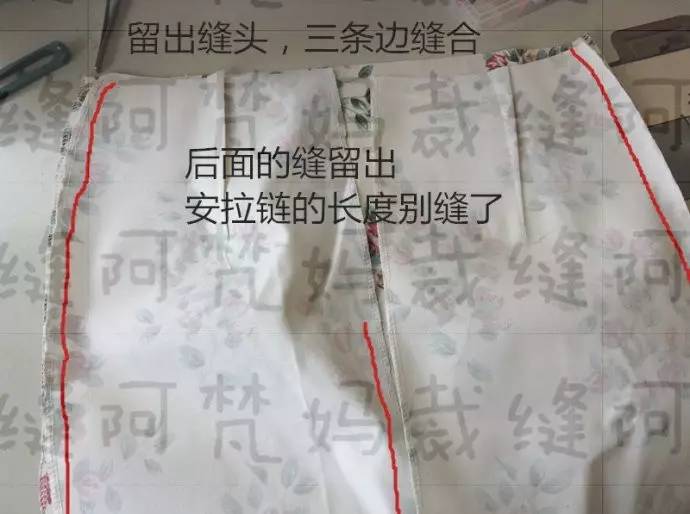 留出缝头，三条边缝合
后面的缝留出
安拉链的长度别缝了
缝阿梵妈裁缝阿
缝阿梵妈裁缝阿
缝阿梵妈裁缝阿
缝阿梵妈裁缝阿